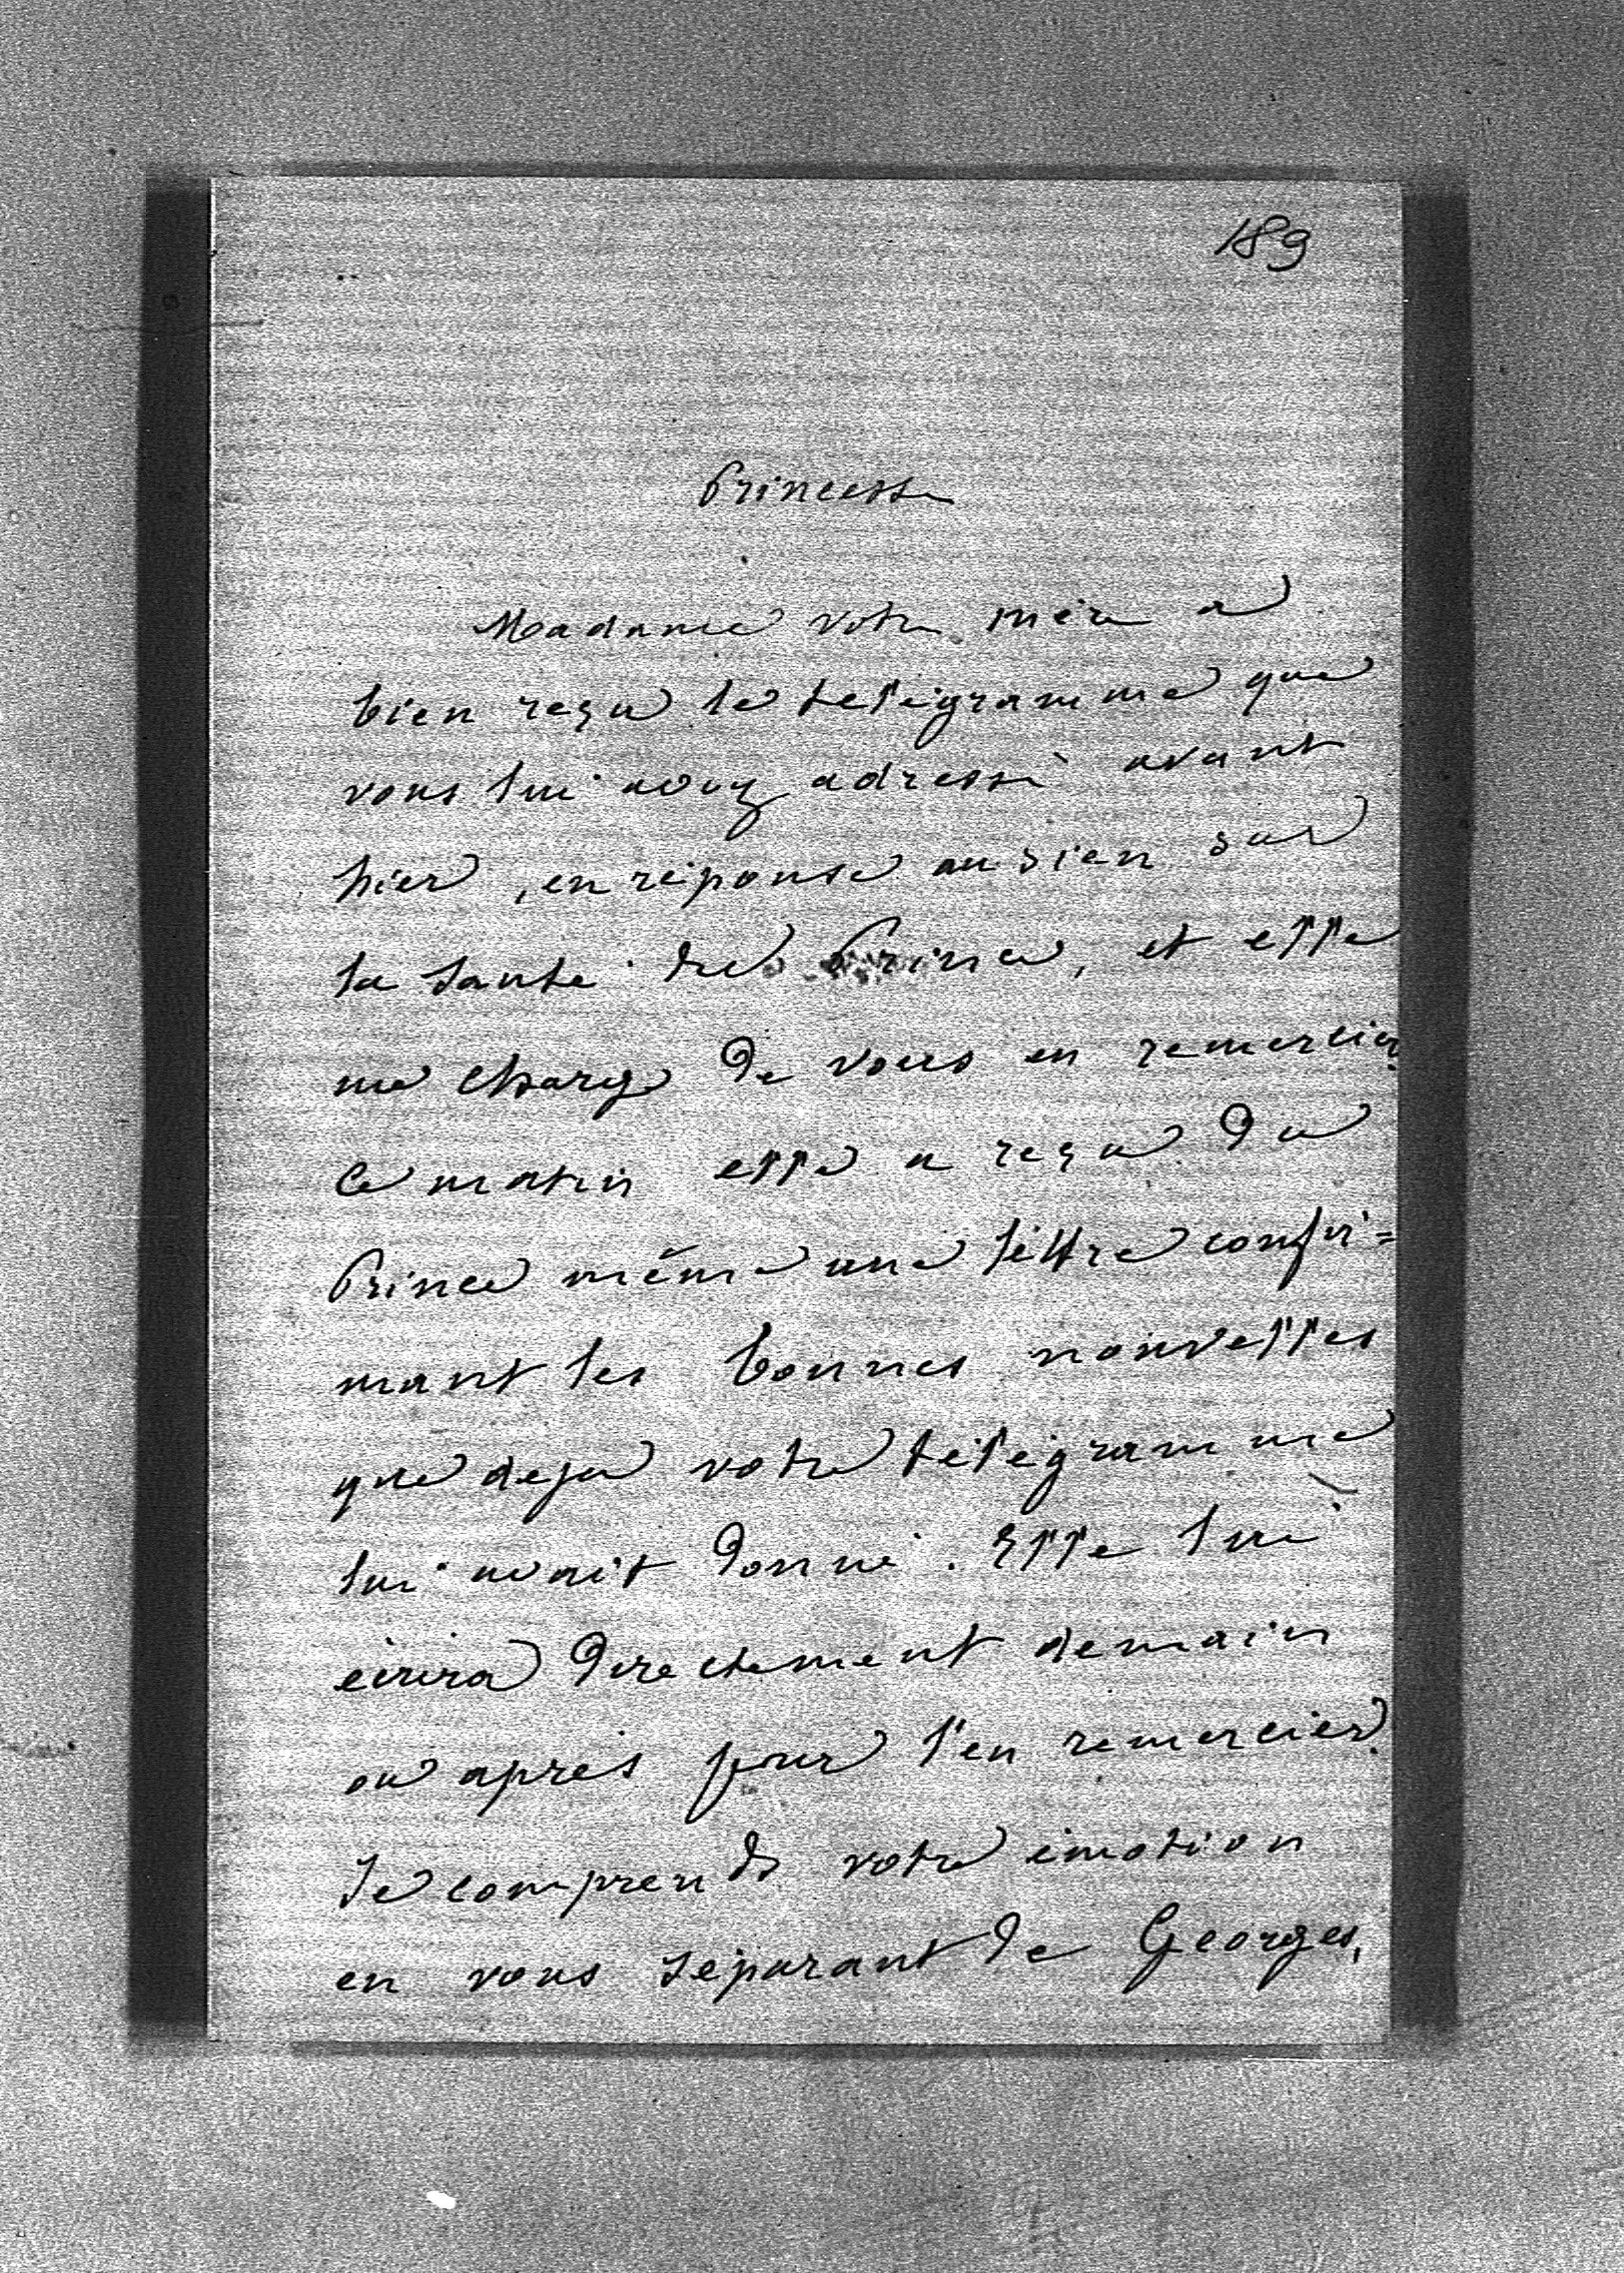 189
Princesse
Madame votre mère a
bien reçu le telégramme que
vous lui avez adressé avant
hier, en réponse au sien sur
la santé du Prince, et elle
me charge de vous en remercier.
Ce matin elle a reçu du
Prince même une lettre confir=
mant les bonnes nouvelles
que deja votre télégramme
lui avait donné. Elle lui
écrira directement demain
ou après pour l'en remercier.
Je comprends votre émotion
en vous séparant de Georges,